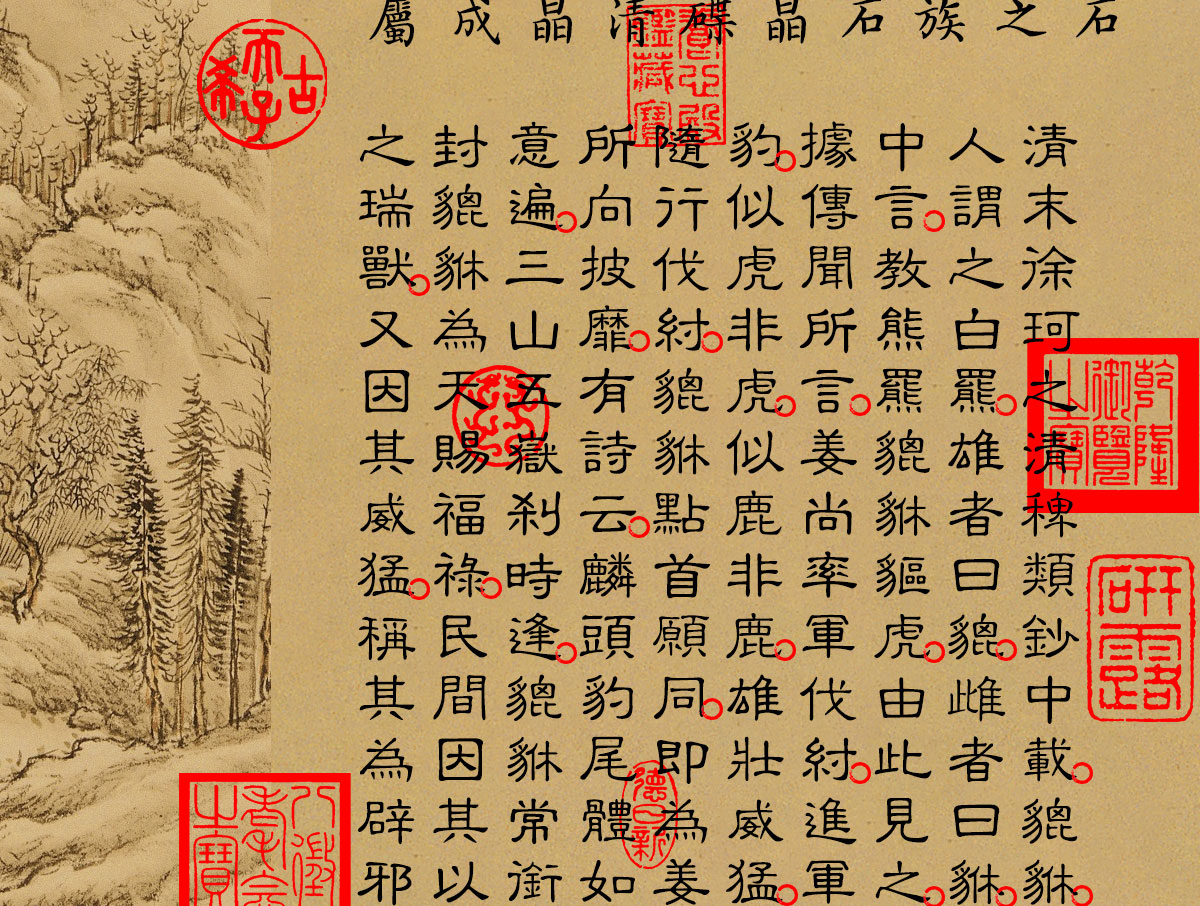 石之族石晶碟清晶成屬
清末徐珂之清稗類鈔中載。貔貅。
人謂之白羆。雄者曰貔。雌者曰貅。
中言。教熊羆貔貅貙虎。由此見之。
據傳聞所言。姜尚率軍伐紂。進軍
豹。似虎非虎。似鹿非鹿。雄壯威猛。
隨行伐紂。貔貅點首願同。即為姜
所向披靡。有詩云。麟頭豹尾體如
意遍。三山五嶽剎時逢。貔貅常銜
封貔貅為天賜福祿。民間因其以
之瑞獸。又因其威猛。稱其為辟邪
乾隆御覽之寶
研露
養心殿鑑藏寶
德日新
古希天子
八徵耄念之寶